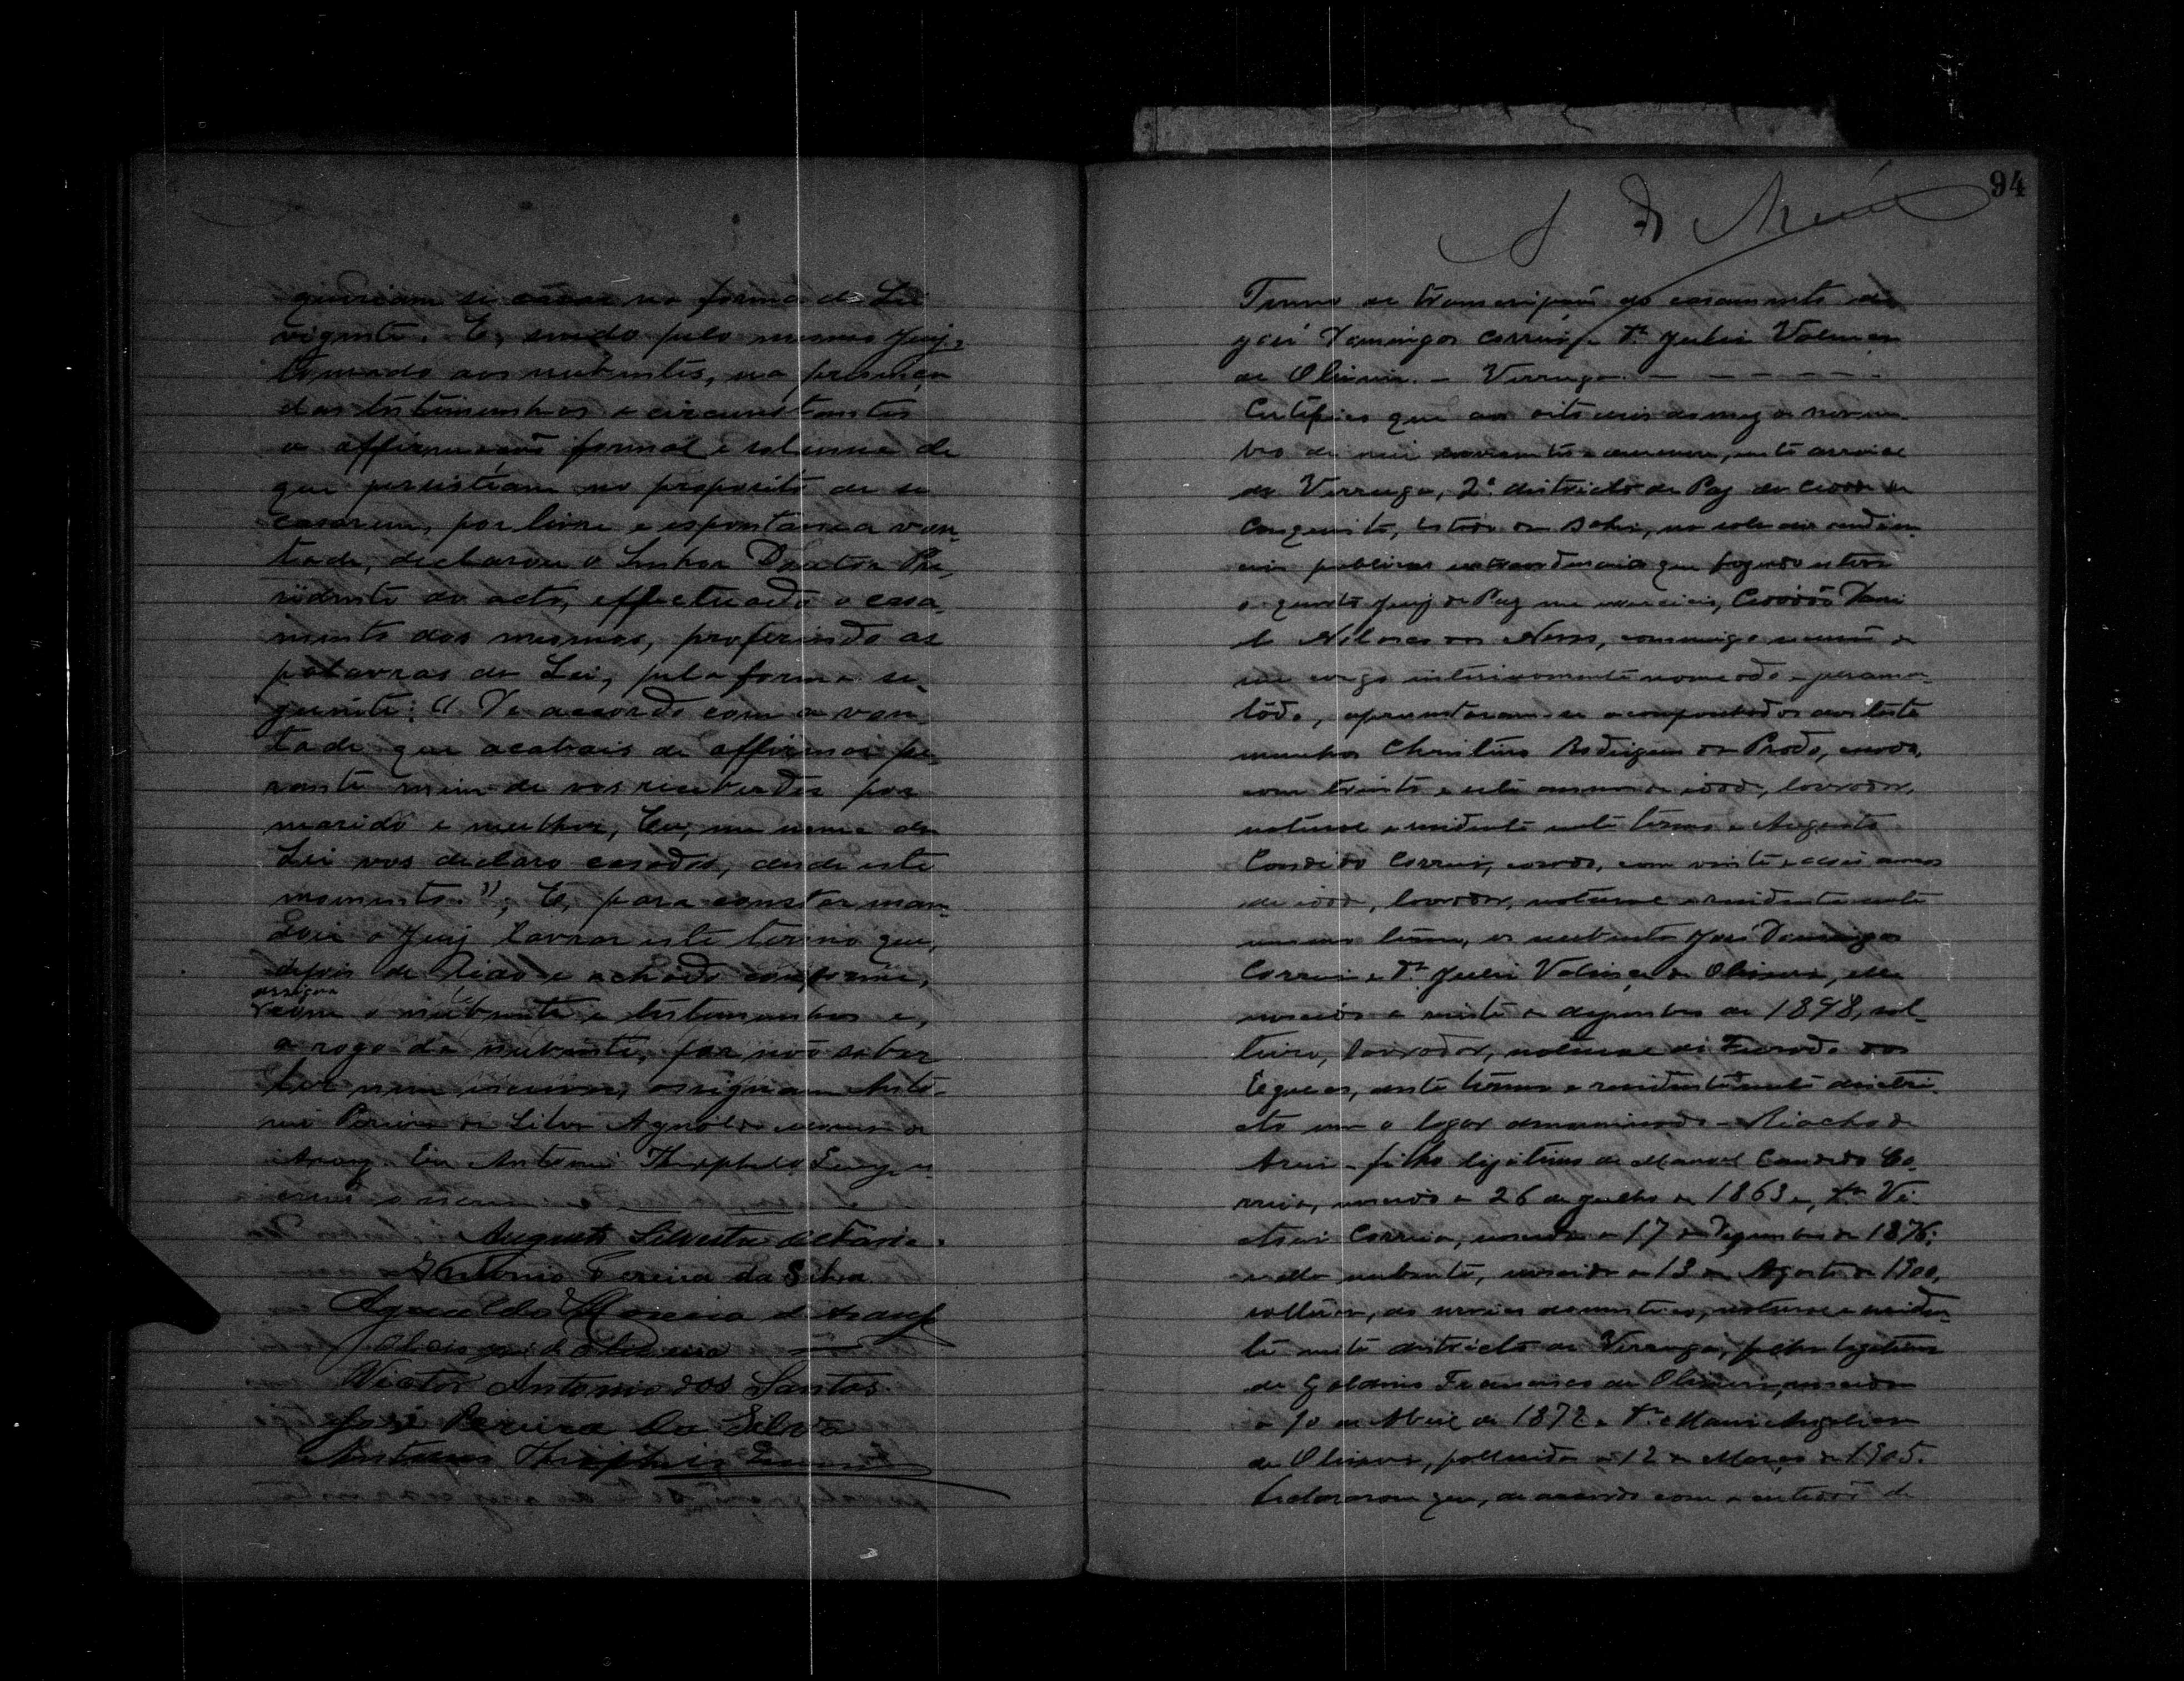 queriam si casar na forma da Lei
vigente. E, sendo pelo mesmo Juiz,
tomado aos nubentes, na presença
das testemunhas e circunstantes
a affirmação formal e solenne de
que persistiam no proposito de se
casarem, por livre e espontanea von-
tade, declarou o Senhor Doutor Pre-
sidente do acto, effectuado o casa-
mento dos mesmos, proferindo as
palavras da Lei, pela forma se-
guinte: "De accordo com a von-
tade que acabais de affirmar pe-
rante mim de vos receberdes por
marido e mulher, Eu, em nome da
Lei vos declaro casados, desde este
momento.", E, para constar man-
dou o Juiz lavrar este termo que,
depois de lido e achado conforme,
assigna
com o nubente e testemunhas e,
a rogo da nubente, por não saber
ler nem escrever, assignam Anto-
nio Pereira da Silva Agnaldo Moreira de
Araujo. Eu Antonio Theophilo
o escrevi
Augusto Silvestre de Faria.
Antonio Pereira da Silva
Agnaldo Moreira de Araujo
de Oliveira
Victor Antonio dos Santos
José Pereira da Silva
Antonio
94
Termo de transcripção do casamento de
José Domingos Correia e Dª Julia
de Oliveira. - Verruga. - - - - - -
Certifico que aos oito dias do mez de novem-
bro de mil novecentos e , neste arraial
da Verruga, 2º districto de Paz da cidade de
Conquista, Estado da Bahia, na sala das audien-
cias publicas extraordinaria que fazendo estava
o quarto Juiz de Paz em exercicio, Cidadão
das Neves, commigo escrivão de
seu cargo interinamente nomeado e jurame-
tado, apresentaram-se acompanhados das teste-
munhas Rodrigues do Prado, casado,
com trinta e sete annos de idade, lavrador,
natural e residente neste termo e Augusto
Candido Correia, casado, com vinte e annos
de idade, lavrador, natural e residente neste
mesmo termo, os nubentes José Domingos
Correia e Dª Julia de Oliveira, elle
nascido a vinte de dezembro de 1898, sol-
teiro, lavrador, natural de Furado das
Eguas, deste termo e residente neste distri-
cto em o logar denominado - Riacho de
Areia - filho legitimo de Manoel Candido Co-
rreia, nascido a 26 de julho de 1863 e, Dª Vi-
Correia, nascida a 17 de Dezembro de 1876;
e ella nubente, nascida a 13 de Agosto de 1900,
solteira, de serviços domesticos, natural e residen-
te neste districto da Verruga, filha legitima
de Galdino Francisco de Oliveira, nascido
a 10 de Abril de 1872 e Dª Maria
de Oliveira, fallecida a 12 de Março de 1905.
Declararam que, de accordo com a certidão de